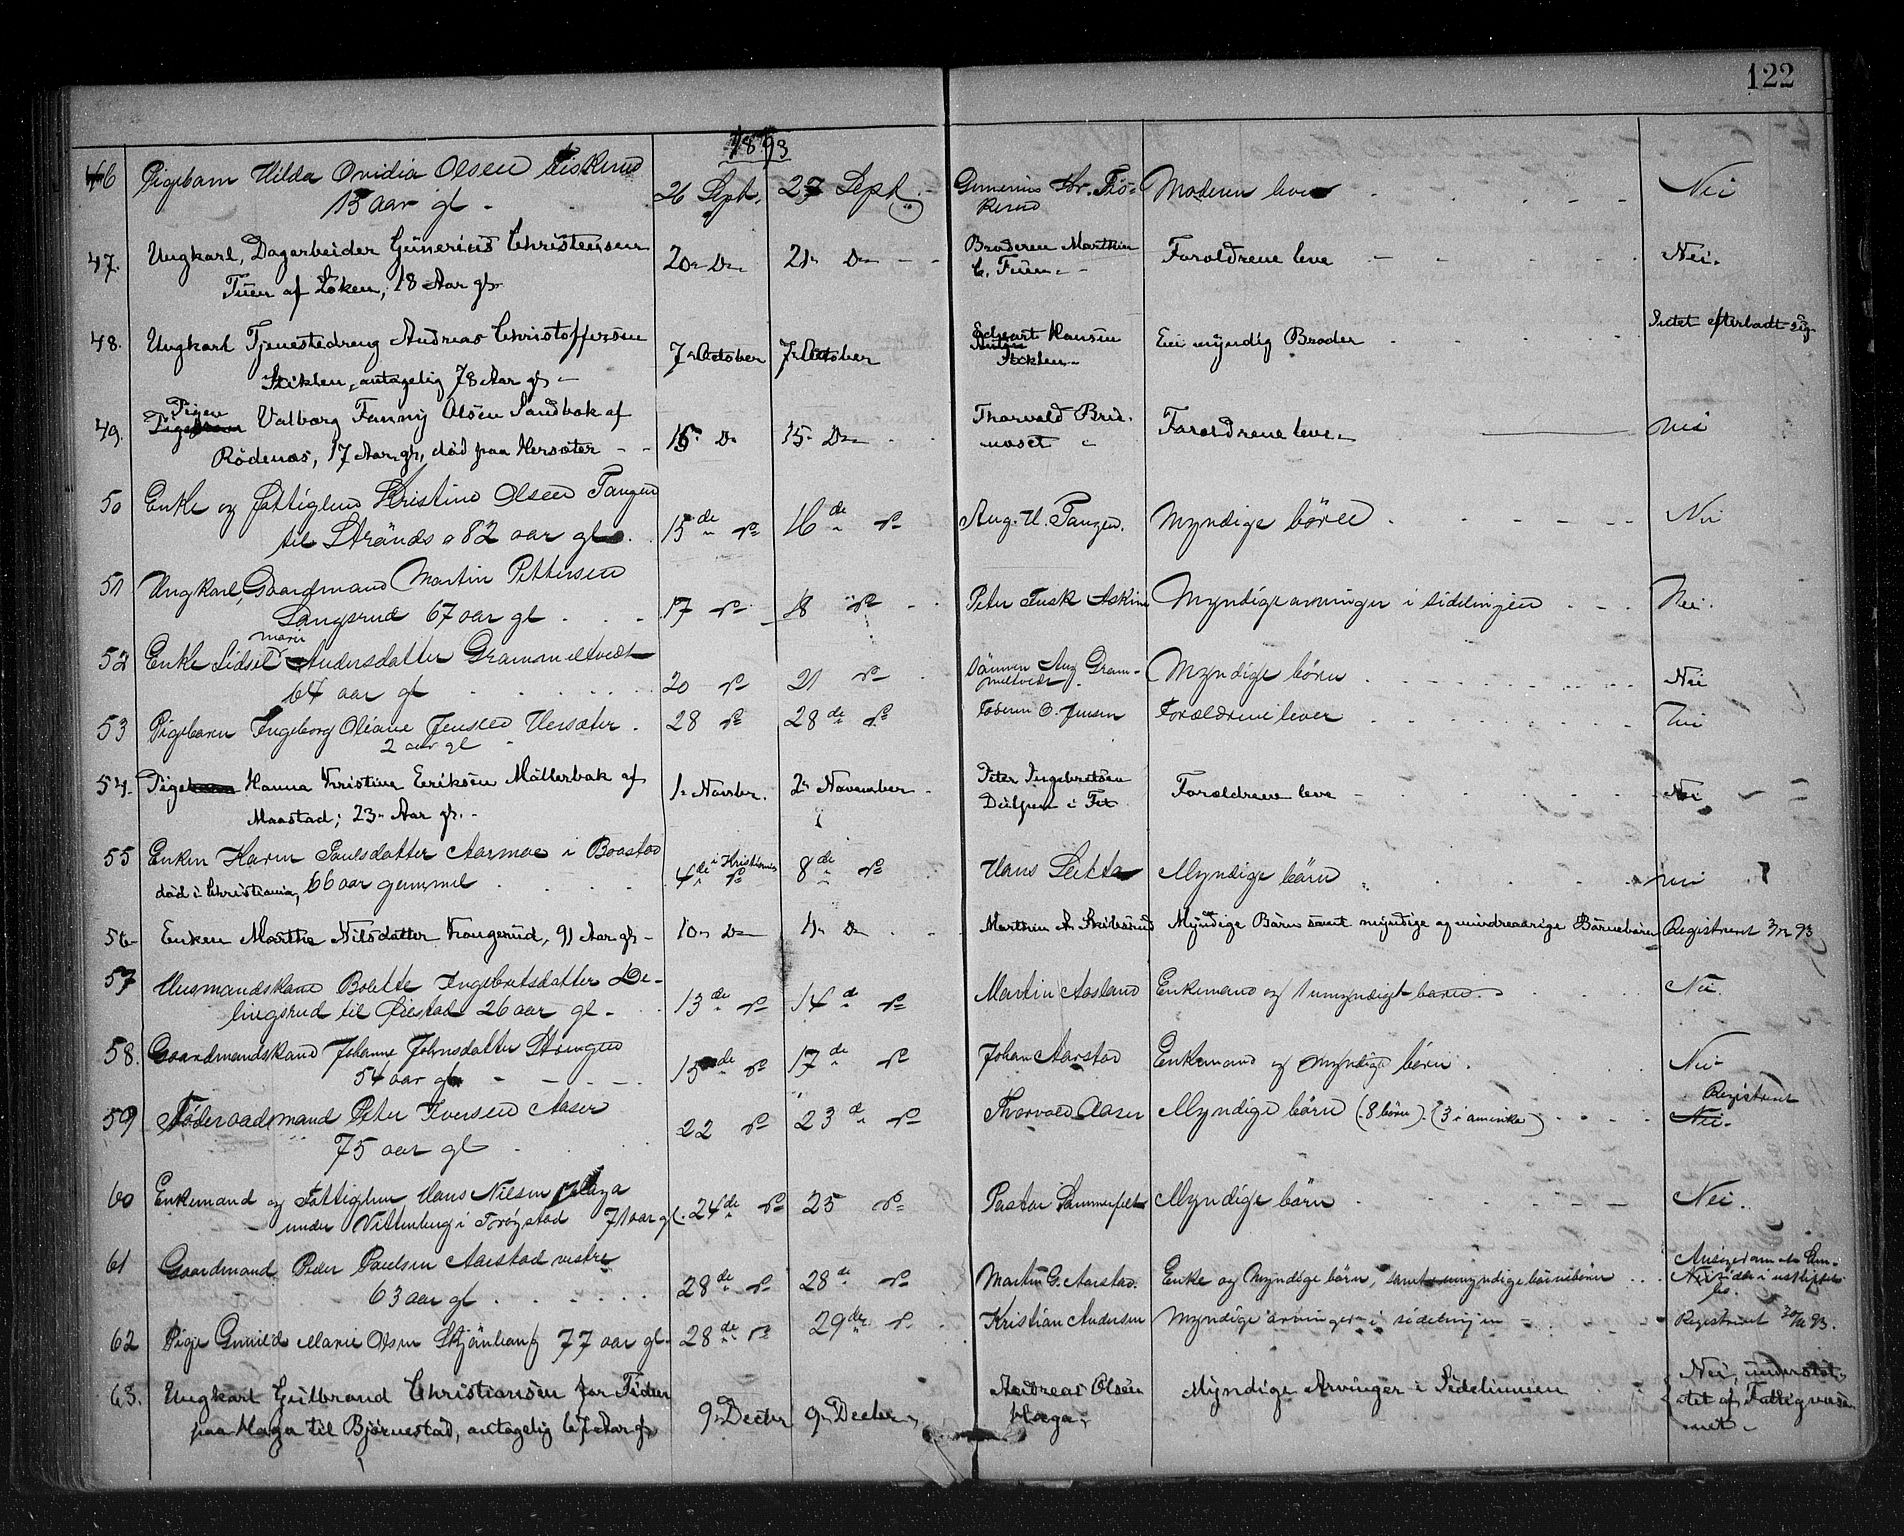 122
1893
46 Pigebarn Hilda Ovidia Olsen Fiskerud 26 Sept. 27 Sept. Moderen lever Nei
15 aar gl
47. Ungkarl, Dagarbeider Günerius Christensen 20 Do 21 Do Broderen Marthin Foroldrene leve Nei
Tuen af Löken, 18 Aar gl. C. Tuen
48. Ungkarl Tjenestedreng Andreas Christoffersen 7 October 7 October Hansen Een myndig Broder Intet efterladt sig
Stiklen, antagelig 78 Aar gl Stiklen
49. Pigen Valborg Fanny Olsen Sandbak af 15 Do 15 Do Thorvald Forældrene leve Nei
Rödenæs, 17 Aar gl, död paa Hersæter
50 Enke og Fattiglem Kristine Olsen Tangen 15de Do 16de Do Aug. H. Tangen. Myndige börn Nei
til Strönds 82 aar gl
51 Ungkarl, Gaardmand Martin Pettersen 17 Do 18 Do Peter Fusk Askim Myndige arvinger i sidelinjen Nei.
Langsrud 67 aar gl
52 Enke Sidsel Marie Andersdatter Grammeltvedt 20 Do 21 Do Sönnen Aug Gram- Myndige börn Nei
64 aar gl meltvedt
53 Pigebarn Ingeborg Oliane Jensen Hersæter 28 Do 28de Do Faderen O. Jensen Forældrene lever Nei
2 aar gl
54. Pige Hanna Kristine Eriksen Möllerbak af 1 Novbr. 2 November Peter Ingebretsen Forældrene leve Nei
Maastad; 23 Aar gl.
55 Enken Karen Paulsdatter Aarmoe i Baastad 4de i Kristiania Do 8de Do Hans Myndige börn Nei
död i Christiania, 66 aar gammel
56 Enken Marthe Nilsdatter Krangerud, 91 Aar gl 10 Do 11 Do Marthin A. Myndige Börn samt myndige og mindreaarige Börnebörn Registreret 93
57 Husmandskone Bolette Ingebretsdatter De- 13de Do 14de Do Martin Aasland Enkemand og 1 umyndigt barn Nei.
lingsrud til Öiestad 26 aar gl.
58. Gaardmandskone Johanne Johnsdatter 15de Do 17de Do Johan Aarstad Enkemand og myndige börn Nei
54 aar gl
59 Föderaadsmand Peter Iversen Aaser 22 Do 23d Do Thorvald Aaser Myndige börn (8 börn) (3 i amerika) Registreret
75 aar gl Nei.
60 Enkemand og Fattiglem Hans Nilsen Haga 24de Do 25 Do Pastor Sommerfelt Myndige börn Nei.
under Vittenberg i Trögstad 71 aar gl.
61 Gaardmand Peder Paulsen Aarstad vestre 28de Do 28de Do Martin G. Aarstad. Enke og myndige börn, samt umyndige börnebörn
63 aar gl
62 Pige Gunild Marie Olsen Skjönhaug 77 aar gl 28de Do 29de Do Kristian Andersen Myndige arvinger i sidelinjen Registreret 93.
63. Ungkarl Gulbrand Christiansen for Tiden 9 Decbr 9 Decbr Andreas Olsen Myndige Arvinger i Sidelinnien Nei, understöt-
paa Haga til Björnestad, antagelig 67 Aar gl Haga tet af Fattigvæse-
net